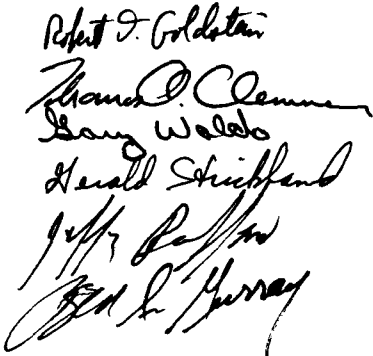 Robert I. Goldstein
Thomas O. Clemmer
Gary Waldo
Gerald Strickland
Jeffy
Murray